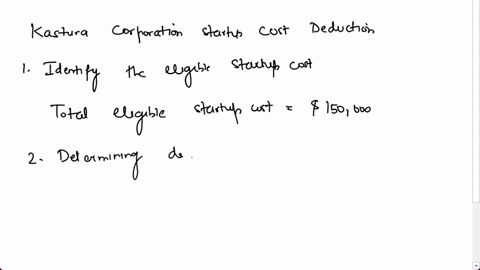 Kastura Corporation startup cost Deduction
1. Identify the eligible startup cost
Total eligible startup cost = $150,000
2. Determining de